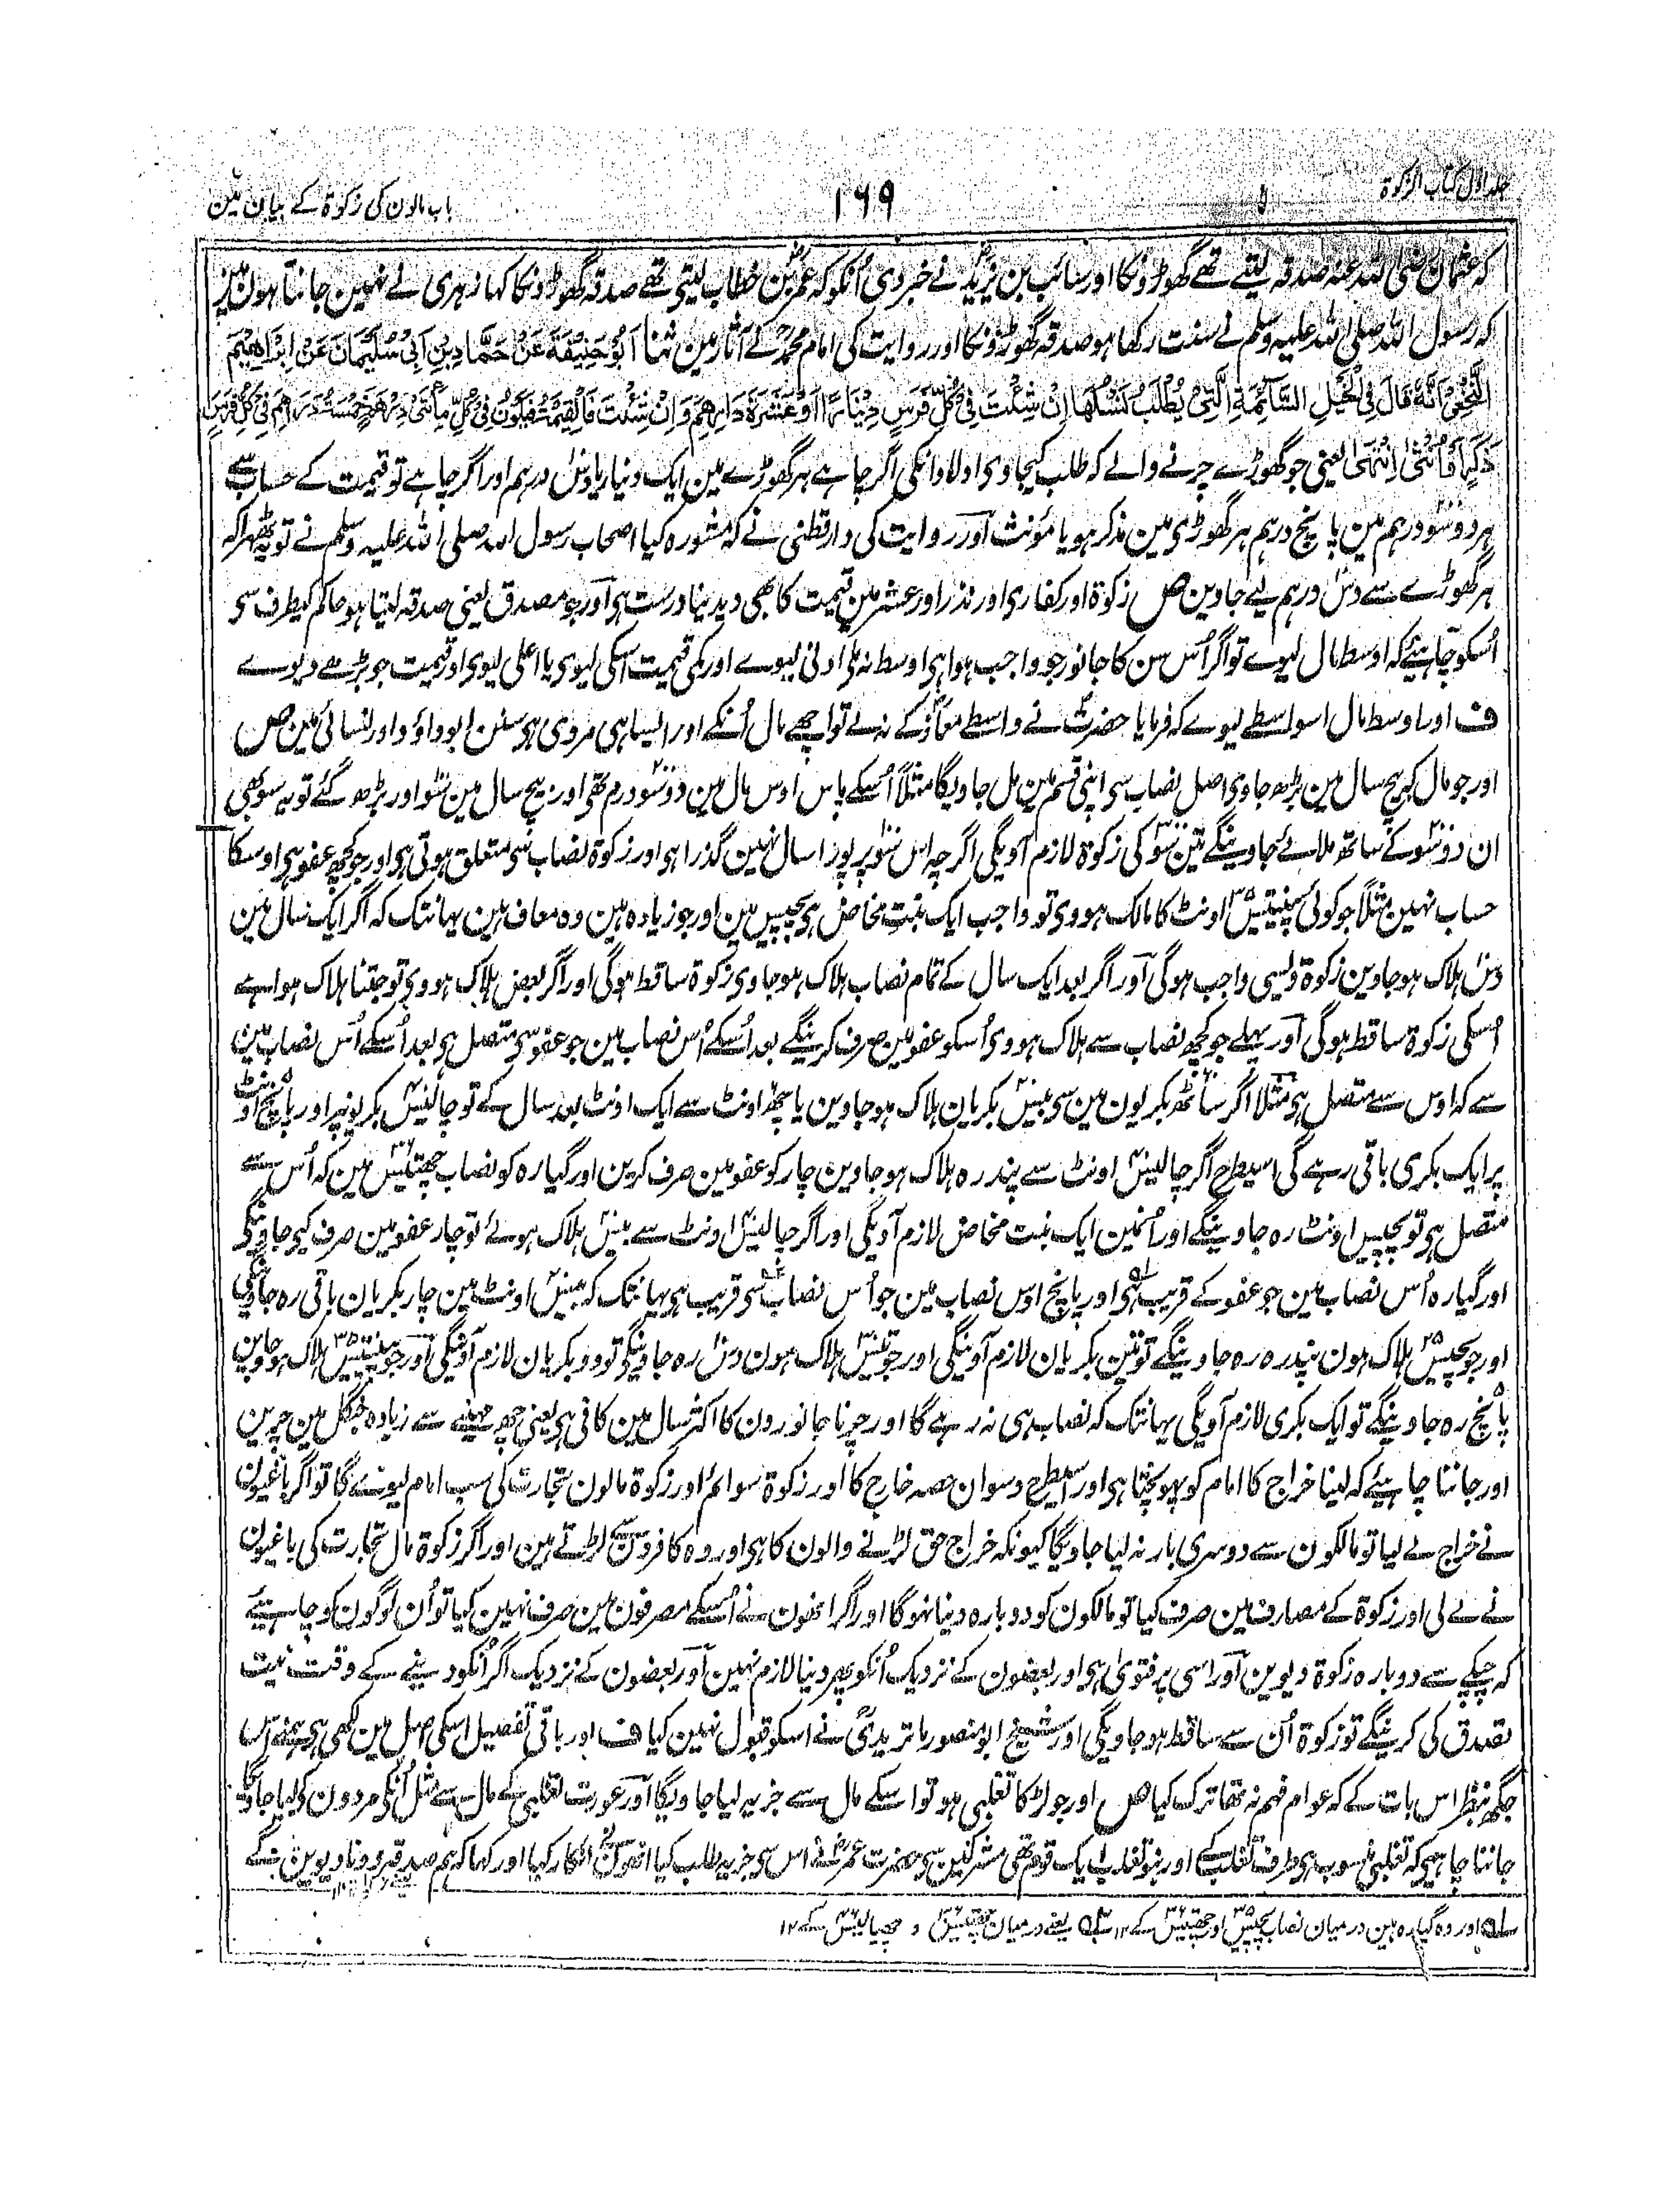 جلد اول کتاب الزکوۃ
۱۶۹
باب مالون کی زکوۃ کے بیان مین
کہ عثمان رضی اللہ عنہ صدقہ لیتے تھے گھوڑونکا اور سائب بن یزیدؓ نے خبر دی اُنکو کہ عمرؓ بن خطاب لیتی تھے صدقہ گھوڑونکا کہا زہری نے نہین جانتا ہون مین
کہ رسول اللہ صلی اللہ علیہ وسلم نے سنت رکھا ہو صدقہ گھوڑونکا اور روایت کی امام محمدؒ کے آثار مین ثنا اَبُو حَنِيْفَةَ عَنْ حَمَّادِ بْنِ اَبِيْ سُلَيْمَانَ عَنْ اِبْرَاهِيْمَ
النَّخْعِيِّ اَنَّهٗ قَالَ فِي الْخَيْلِ السَّائِمَةِ الَّتِيْ يُطْلَبُ نَسْلُهَا اِنْ شِئْتَ فِيْ كُلِّ فَرَسٍ دِيْنَارًا اَوْ عَشَرَةَ دَرَاهِمَ وَاِنْ شِئْتَ فَالْقِيْمَةُ فَيَكُوْنُ فِيْ كُلِّ مِأَتَيْ دِرْهَمٍ خَمْسَةُ دَرَاهِمَ فِيْ كُلِّ فَرَسٍ
ذَكَرٍ اَوْ اُنْثٰى اِنْتَهٰى یعنی جو گھوڑے چرنے والے کہ طلب کیجاوی اولاد انکی اگر چاہے ہر گھوڑے مین ایک دنیار یا دسؔ درہم اور اگر چاہے تو قیمت کے حساب سے
ہر دو سو درہم مین پانچ درہم ہر گھوڑی مین مذکر ہو یا مؤنث اور روایت کی دارقطنی نے کہ مشورہ کیا اصحاب رسول اللہ صلی اللہ علیہ وسلم نے تو یہ ٹھہرا کہ
ہر گھوڑے سے دس درہم لیے جاوین ص زکوۃ اور کفاری اور نذر اور عشر مین قیمت کا بھی دیدینا درست ہی اور جو مصدق یعنی صدقہ لیتا ہو حاکم کیطرف سی
اُسکو چاہئیے کہ اوسط مال لیوے تو اگر اُس سن کا جانور جو واجب ہوا ہی اوسط نہ ملی ادنی لیوے اور کمی قیمت اسکی لیوی یا اعلی لیوی اور قیمت جو بڑھے دیوے
ف اور اوسط مال اسواسطے لیوے کہ فرمایا حضرتؐ نے واسطے معاذؓ کے نہ لے تو اچھے مال اُنکے اور ایسا ہی مروی ہی سنن ابو داؤد اور نسائی مین ص
اور جو مال کہ بیچ سال مین بڑھ جاوی اصل نصاب سی اپنی قسم مین مل جاویگا مثلاً اُسکے پاس اوس مال مین دو سو درم تھی اور بیچ سال مین سو اور بڑھ گئے تو یہ سو بھی
ان دو سو کے ساتھ ملائے جاوینگے تین سو کی زکوۃ لازم آویگی اگرچہ اس سو پر پورا سال نہین گذرا ہی اور زکوۃ نصاب سی متعلق ہوتی ہی اور جو کچھ عفو ہی اوسکا
حساب نہین مثلاً جو کوئی پینتیس ۳۵ اونٹ کا مالک ہووی تو واجب ایک بنت مخاض ہی پچیس مین اور جو زیادہ ہین وہ معاف ہین یہانتک کہ اگر ایک سال مین
دس ہلاک ہو جاوین زکوۃ ویسی واجب ہوگی اور اگر بعد ایک سال کے تمام نصاب ہلاک ہو جاوی زکوۃ ساقط ہوگی اور اگر بعض ہلاک ہووی تو جتنا ہلاک ہوا ہے
اُسکی زکوۃ ساقط ہوگی اور پہلے جو کچھ نصاب سے ہلاک ہووی اُسکو عفو مین صرف کرینگے بعد اُسکے اُس نصاب مین جو عفو سی متصل ہی بعد اُسکے اُس نصاب مین
سے کہ اوس سے متصل ہی مثلاً اگر ساٹھ بکریون مین سی بیس بکریان ہلاک ہو جاوین یا چھ اونٹ سے ایک اونٹ بعد سال کے تو چالیس بکریونپر اور پانچ اونٹ
پر ایک بکری باقی رہے گی اسیطرح اگر چالیس اونٹ سے پندرہ ہلاک ہو جاوین چار کو عفو مین صرف کرین اور گیارہ کو نصاب چھتیس ۳۶ مین کہ اُس سے
متصل ہی تو پچیس اونٹ رہ جاوینگے اور اُنمین ایک بنت مخاض لازم آویگی اور اگر چالیس اونٹ سے بیس ہلاک ہوئے تو چار عفو مین صرف کیے جاوینگے
اور گیارہ اُس نصاب مین جو عفو کے قریب ہی اور پانچ اوس نصاب مین جو اُس نصاب سی قریب ہی یہانتک کہ بیس اونٹ مین چار بکریان باقی رہ جاوینگی
اور جو پچیس ۲۵ ہلاک ہون پندرہ رہ جاوینگے تو تین بکریان لازم آوینگی اور جو تیس ہلاک ہون دس رہ جاوینگے تو دو بکریان لازم آوینگی اور جو پینتیس ۳۵ ہلاک ہو جاوین
پانچ رہ جاوینگے تو ایک بکری لازم آویگی یہانتک کہ نصاب ہی نہ رہے گا اور چرنا جانورون کا اکثر سال مین کافی ہی یعنی چھ مہینے سے زیادہ جنگل مین چرین
اور جاننا چاہیئے کہ لینا خراج کا امام کو پہونچتا ہی اور اسیطرح دسوان حصہ خارج کا اور زکوۃ سوائم اور زکوۃ مالون تجارت کی سب امام لیوے گا تو اگر باغیون
نے خراج لے لیا تو مالکون سے دوسری بار نہ لیا جاویگا کیونکہ خراج حق لڑنے والون کا ہی اور وہ کافرونسے لڑتے ہین اور اگر زکوۃ مال تجارت کی باغیون
نے لے لی اور زکوۃ کے مصارف مین صرف کیا تو مالکون کو دوبارہ دینا نہوگا اور اگر انھون نے اُسکے مصرفون مین صرف نہین کیا تو اُن لوگون کو چاہیئے
کہ چپکے سے دوبارہ زکوۃ دیوین اور اسی پر فتویٰ ہی اور بعضون کے نزدیک اُنکو پھر دینا لازم نہین اور بعضون کے نزدیک اگر اُنکو دینے کے وقت نیت
تصدق کی کرینگے تو زکوۃ اُن سے ساقط ہو جاویگی اور شیخ ابو منصور ماتریدیؒ نے اسکو قبول نہین کیا ف اور باقی تفصیل اسکی اصل مین لکھی ہی ہمنے اس
جگھ بنظر اس بات کے کہ عوام فہم نہ تھا ترک کیا ص اور جو لڑکا تغلبی ہو تو اسکے مال سے جزیہ لیا جاویگا اور عورت تغلبی کے مال سے مثل اُنکی مردون کو لیا جاویگا
جاننا چاہیے کہ تغلبی منسوب ہی طرف تغلب کے اور بنو تغلب ایک قوم تھی مشرکین سی حضرت عمرؓ نے اس سی جزیہ طلب کیا انھون نے انکار کیا اور کہا کہ ہم صدقہ دونا دیوین گے
۵۱ اور وہ گیارہ ہین درمیان نصاب پچیس ۲۵ اور چھتیس ۳۶ کے ۱۲ ۵۲ یعنے درمیان چھتیس ۳۶ و چھیالیس ۴۶ کے ۱۲